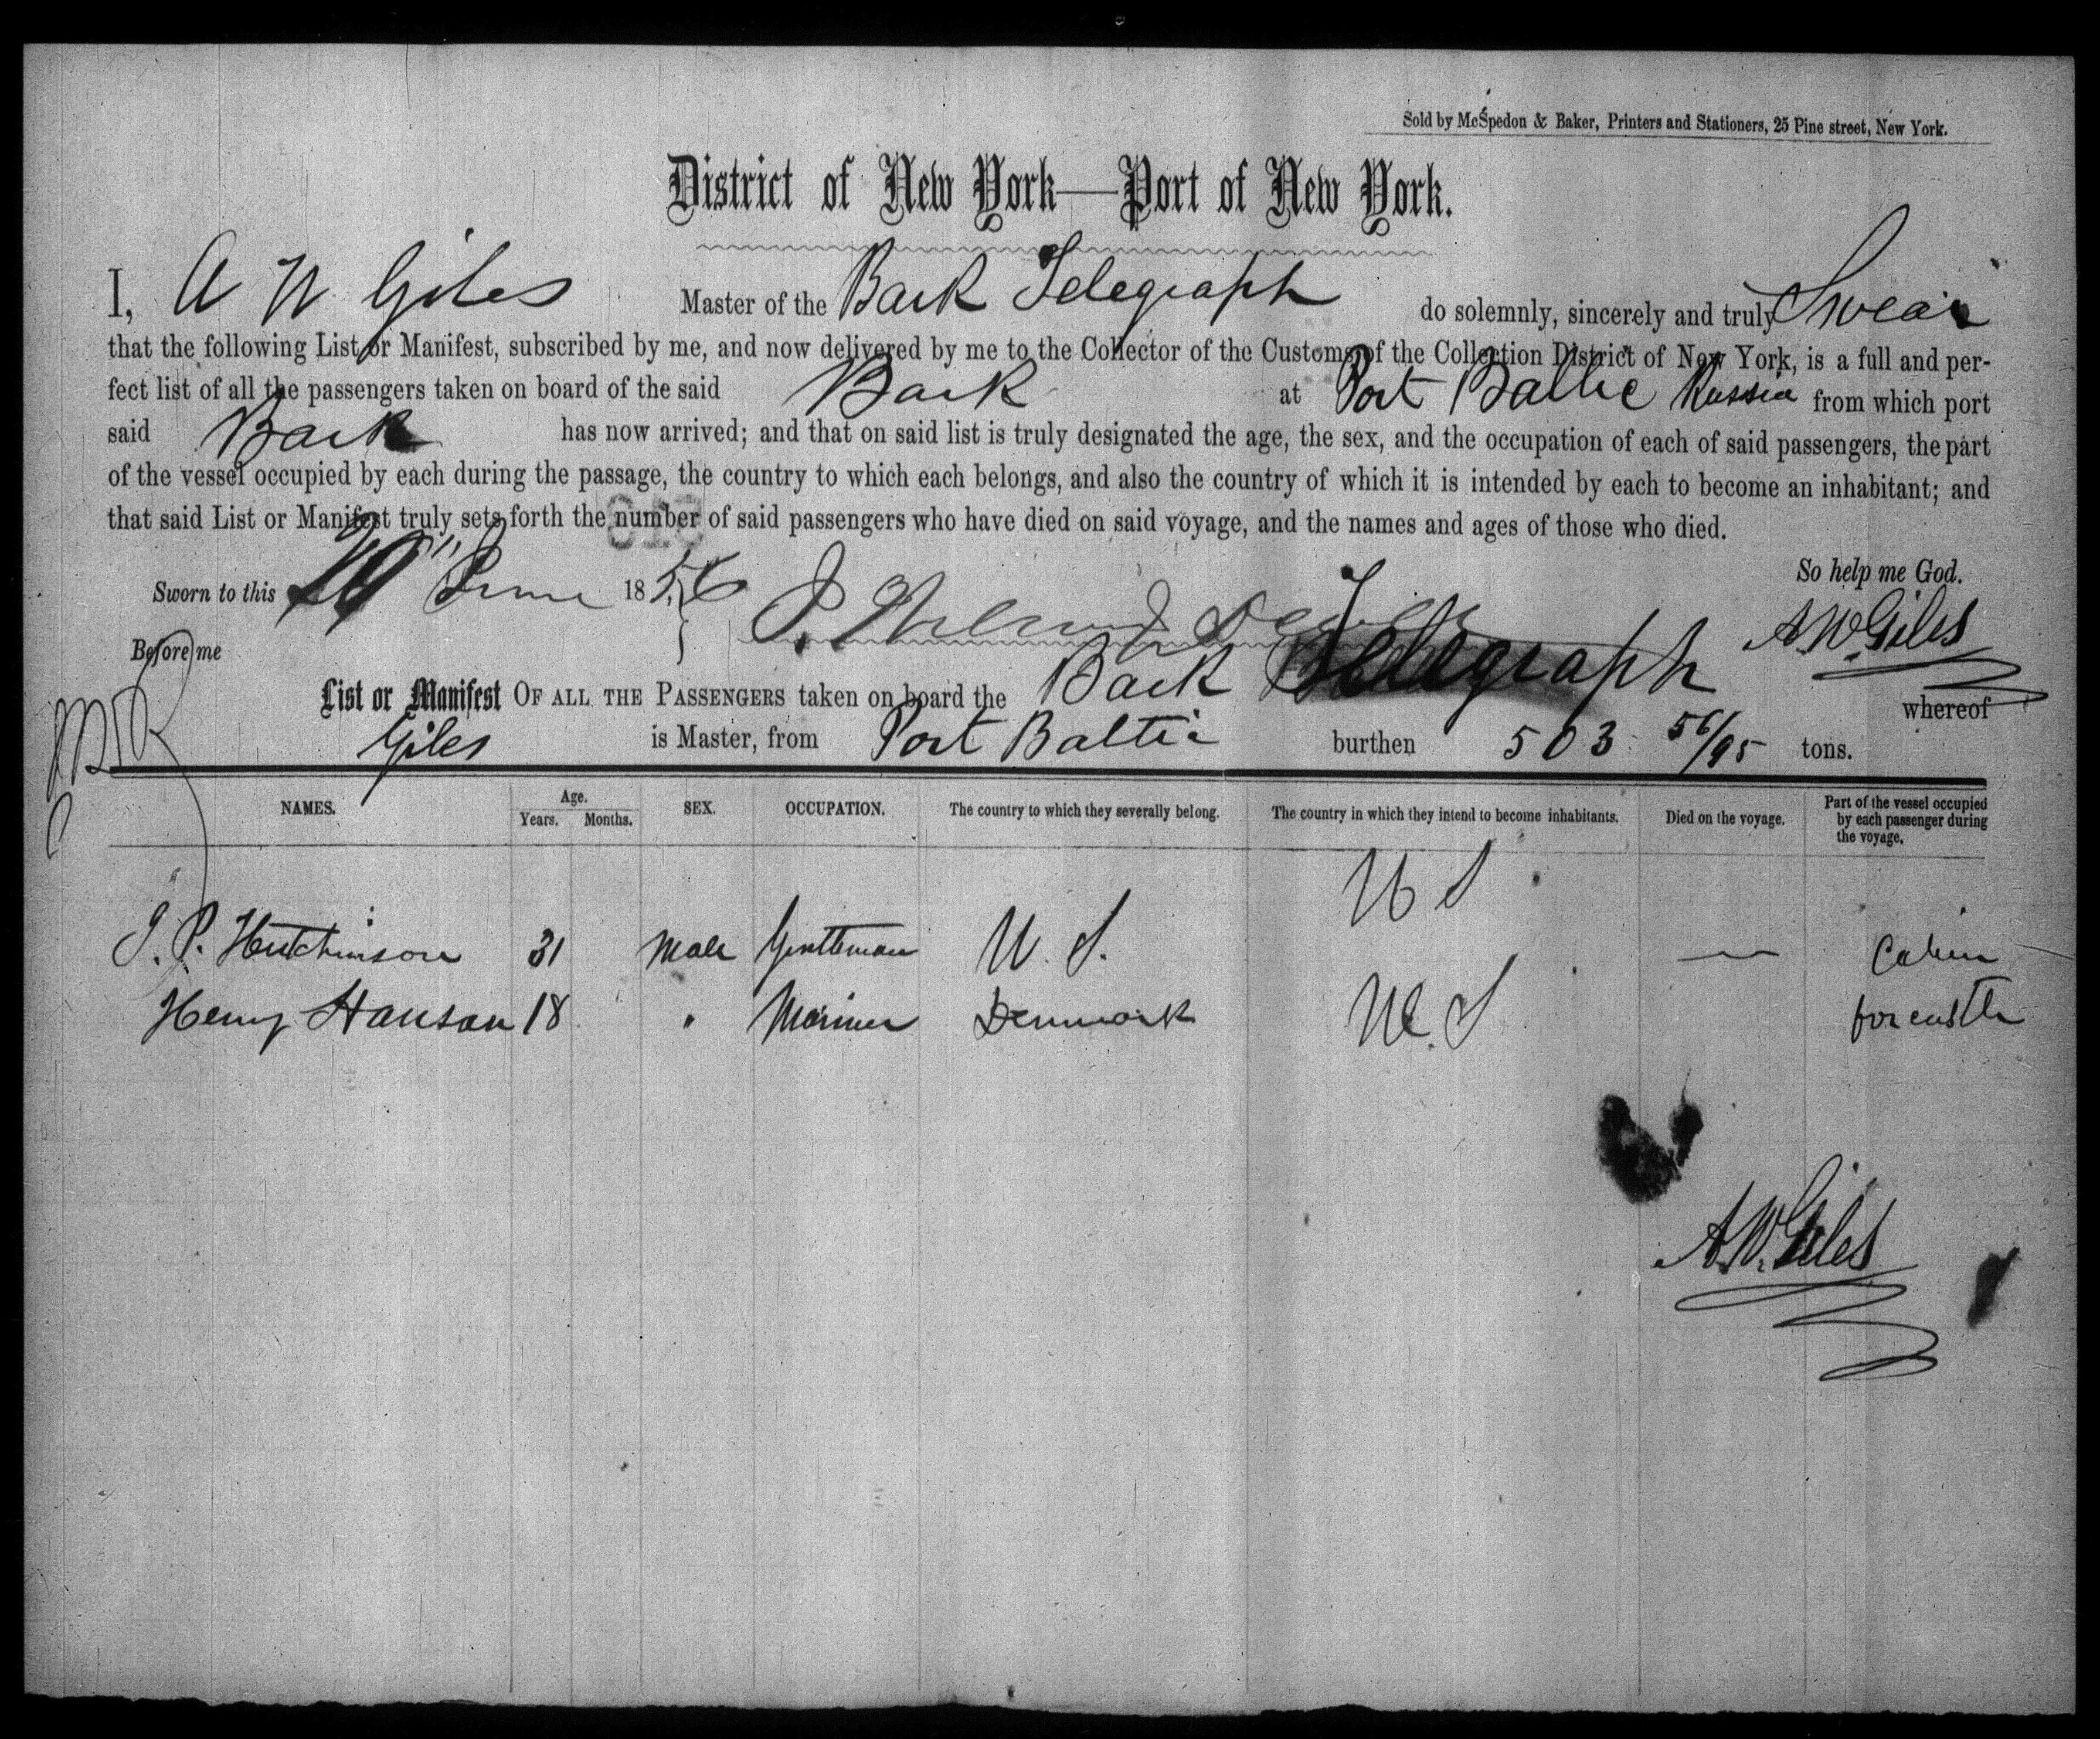 Sold by McSpedon & Baker, Printers and Stationers, 25 Pine street, New York.
District of New York—Port of New York.
I, A W Giles Master of the Bark Telegraph do solemnly, sincerely and truly Swear
that the following List or Manifest, subscribed by me, and now delivered by me to the Collector of the Customs of the Collection District of New York, is a full and per-
fect list of all the passengers taken on board of the said Bark at Port Baltic Russia from which port
said Bark has now arrived; and that on said list is truly designated the age, the sex, and the occupation of each of said passengers, the part
of the vessel occupied by each during the passage, the country to which each belongs, and also the country of which it is intended by each to become an inhabitant; and
that said List or Manifest truly sets forth the number of said passengers who have died on said voyage, and the names and ages of those who died.
So help me God.
Sworn to this June 1856
A.W. Giles
Before me
List or Manifest OF ALL THE PASSENGERS taken on board the Bark Telegraph whereof
Giles is Master, from Port Baltic burthen 503 56/95 tons.
NAMES. Age. Years. Months. SEX. OCCUPATION. The country to which they severally belong. The country in which they intend to become inhabitants. Died on the voyage. Part of the vessel occupied by each passenger during the voyage.
P. Hutchinson 31 Male Gentleman U. S. U S — Cabin
Henry Hanson 18 " Mariner Denmark U. S forcastle
A.W. Giles